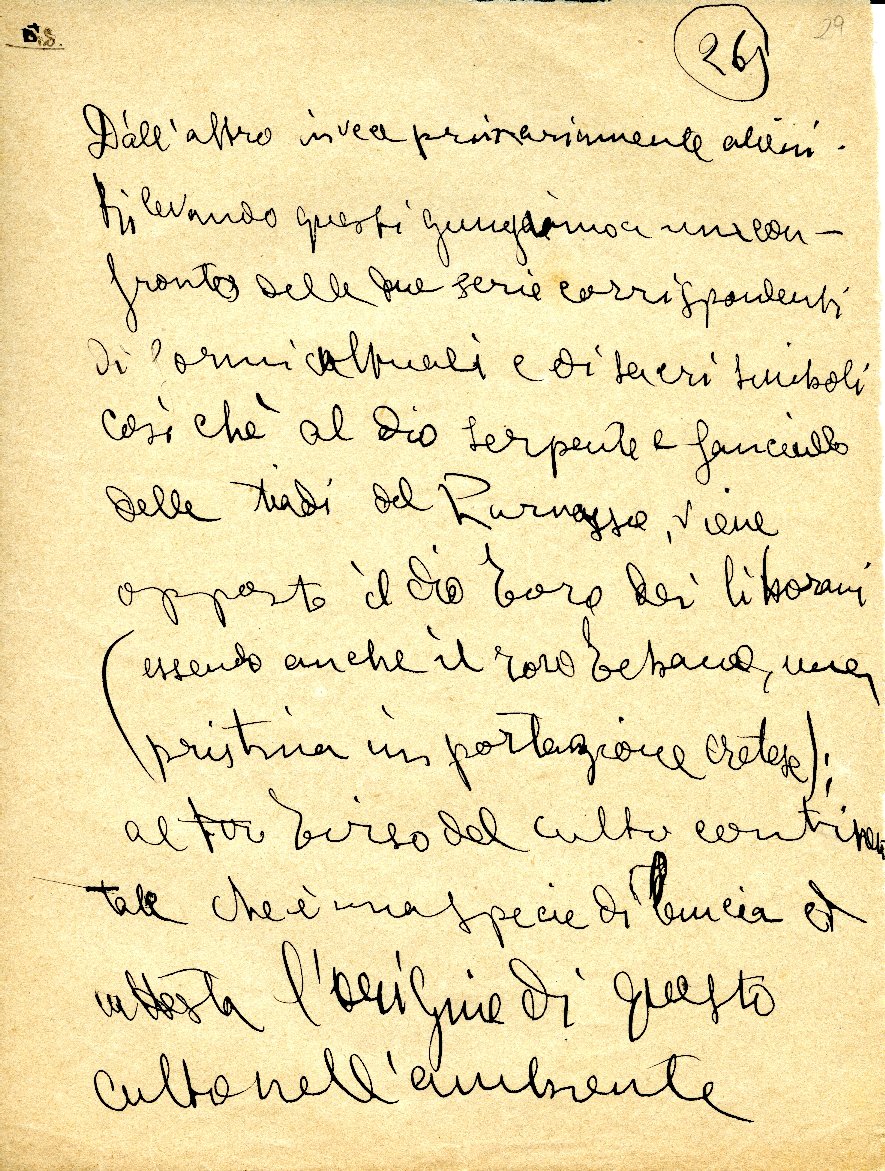 26)
29
Dall'altro invece primariamente alieni.
Rilevando questi giungiamo a un con-
fronto delle due serie corrispondenti
di forme cultuali e di sacri simboli
così chè al dio serpente e fanciullo
delle tiadi del Parnasso, viene
opposto il dio toro dei litorani
(essendo anche il toro tebano, una
pristina importazione cretese);
al tirso del culto continen
tale che è una specie di lancia ed
attesta l'origine di questo
culto nell'ambiente